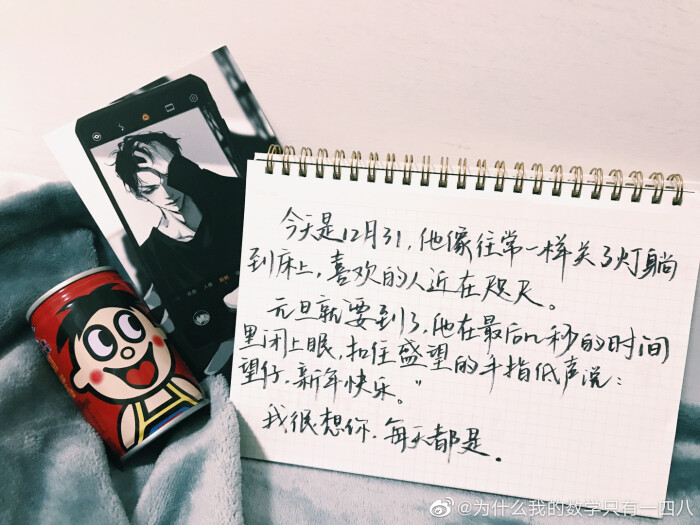 今天是12月31,他像往常一样关了灯躺
到床上,喜欢的人近在咫尺。
元旦就要到了,他在最后几秒的时间
里闭上眼,扣住盛望的手指低声说:
望仔,新年快乐。”
我很想你,每天都是.
@为什么我的数学只有一四八